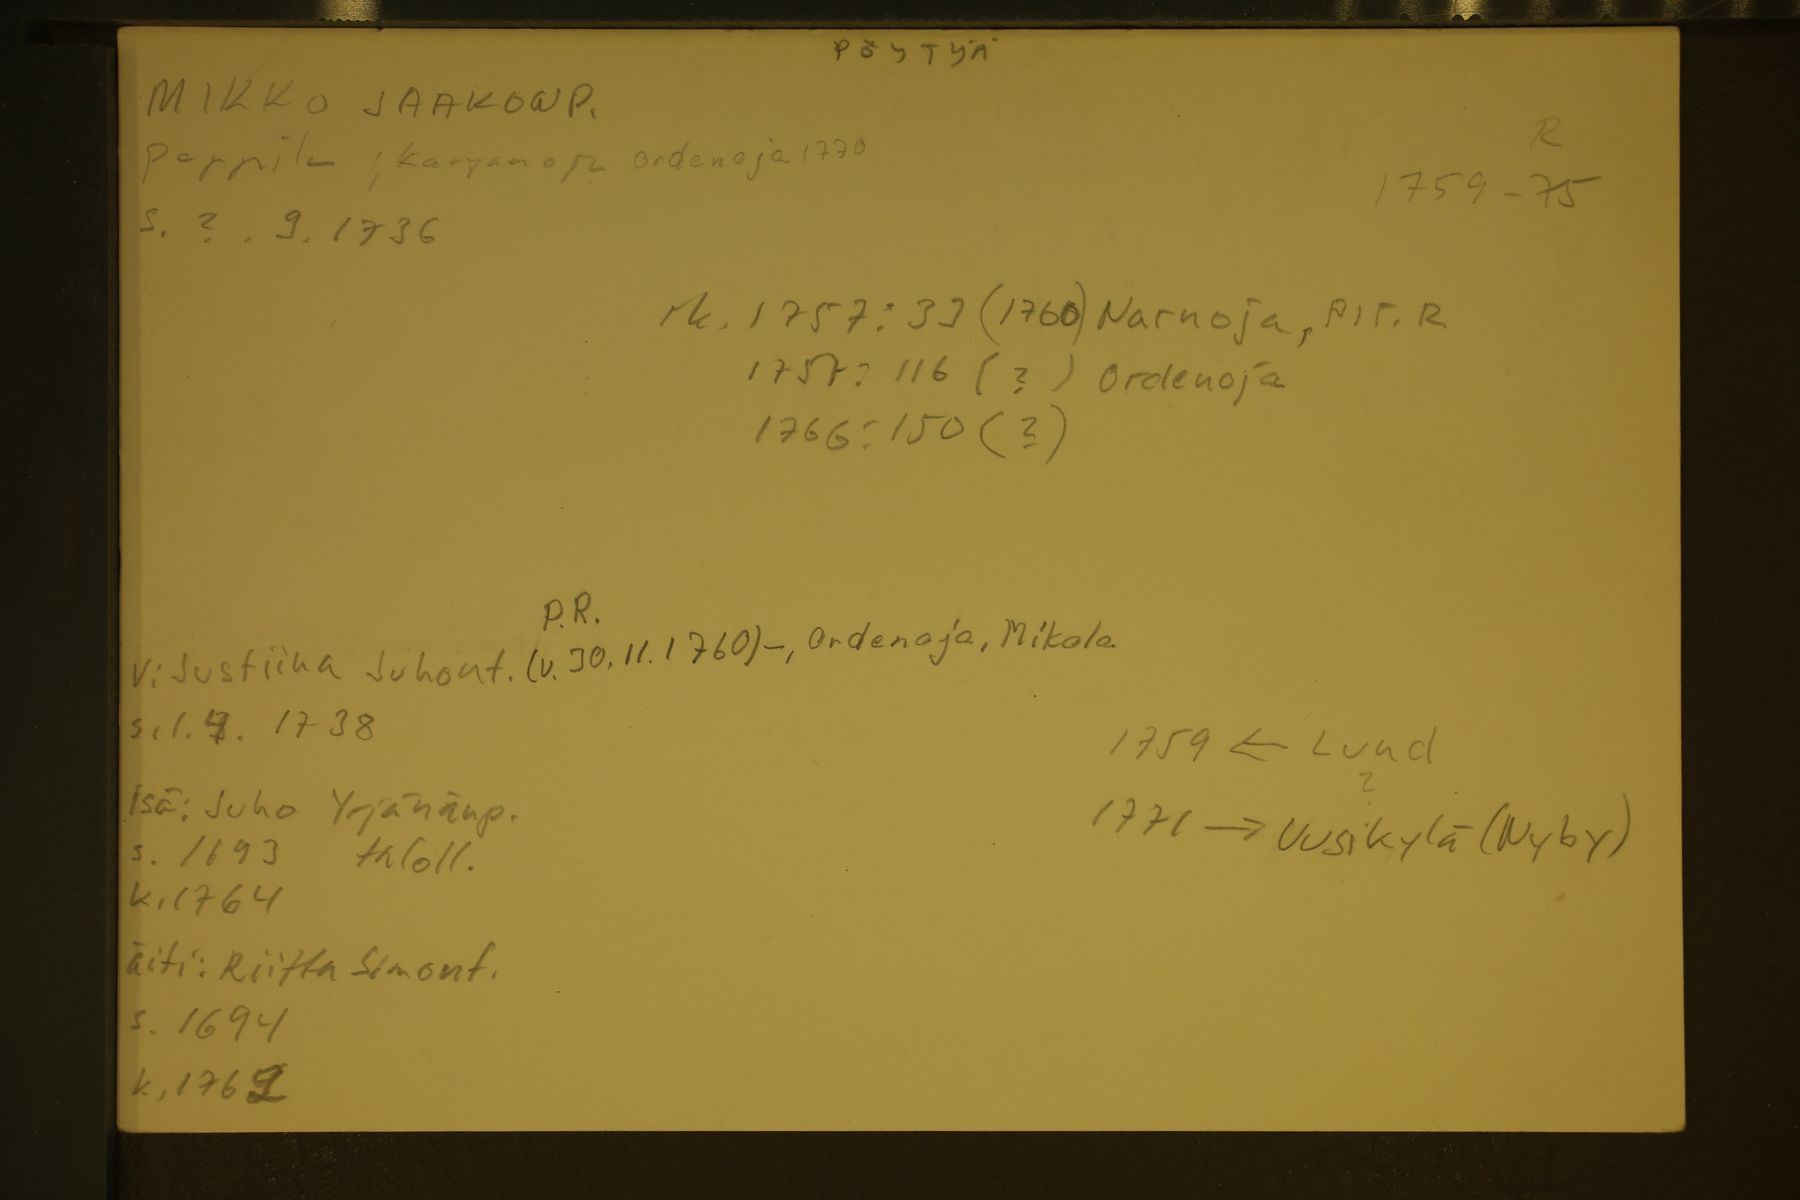 PÖYTYÄ
MIKKO JAAKONP.
Pappila, Karjanoja Ordenoja 1770
R
1759-75
s. ? . 9. 1736
rk. 1757: 33 (1760) Narnoja, PIT. R
1757: 116 (?) Ordenoja
1766: 150 (?)
P.R.
v: Justiina Juhont. (v. 30.11.1760)-, Ordenoja, Mikola
s. 1. . 1738
1759 ← Lund
?
1771 → Uusikylä (Nyby)
isä: Juho Yrjänänp.
s. 1693 tkloll.
k. 1764
äiti: Riitta Simont.
s. 1694
k, 1762